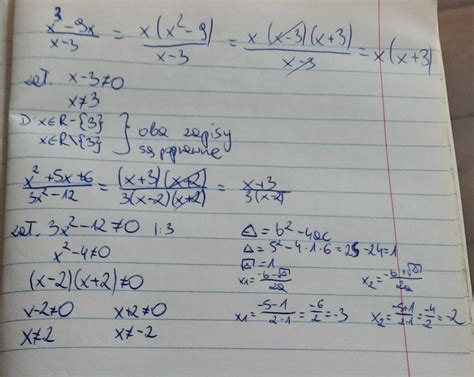 x³-9x / x-3 = x(x²-9) / x-3 = x(x-3)(x+3) / x-3 = x(x+3)
zał. x-3≠0
x≠3
D: x∈R-{3}
x∈R\{3} } oba zapisy
są poprawne
x²+5x+6 / 3x²-12 = (x+3)(x+2) / 3(x-2)(x+2) = x+3 / 3(x-2)
zał. 3x²-12≠0 |:3
x²-4≠0
(x-2)(x+2)≠0
x-2≠0 x+2≠0
x≠2 x≠-2
Δ=b²-4ac
Δ=5²-4·1·6=25-24=1
√Δ=1
x₁=-b-√Δ / 2a x₂=-b+√Δ / 2a
x₁=-5-1 / 2·1=-6/2=-3 x₂=-5+1 / 2·1=-4/2=-2